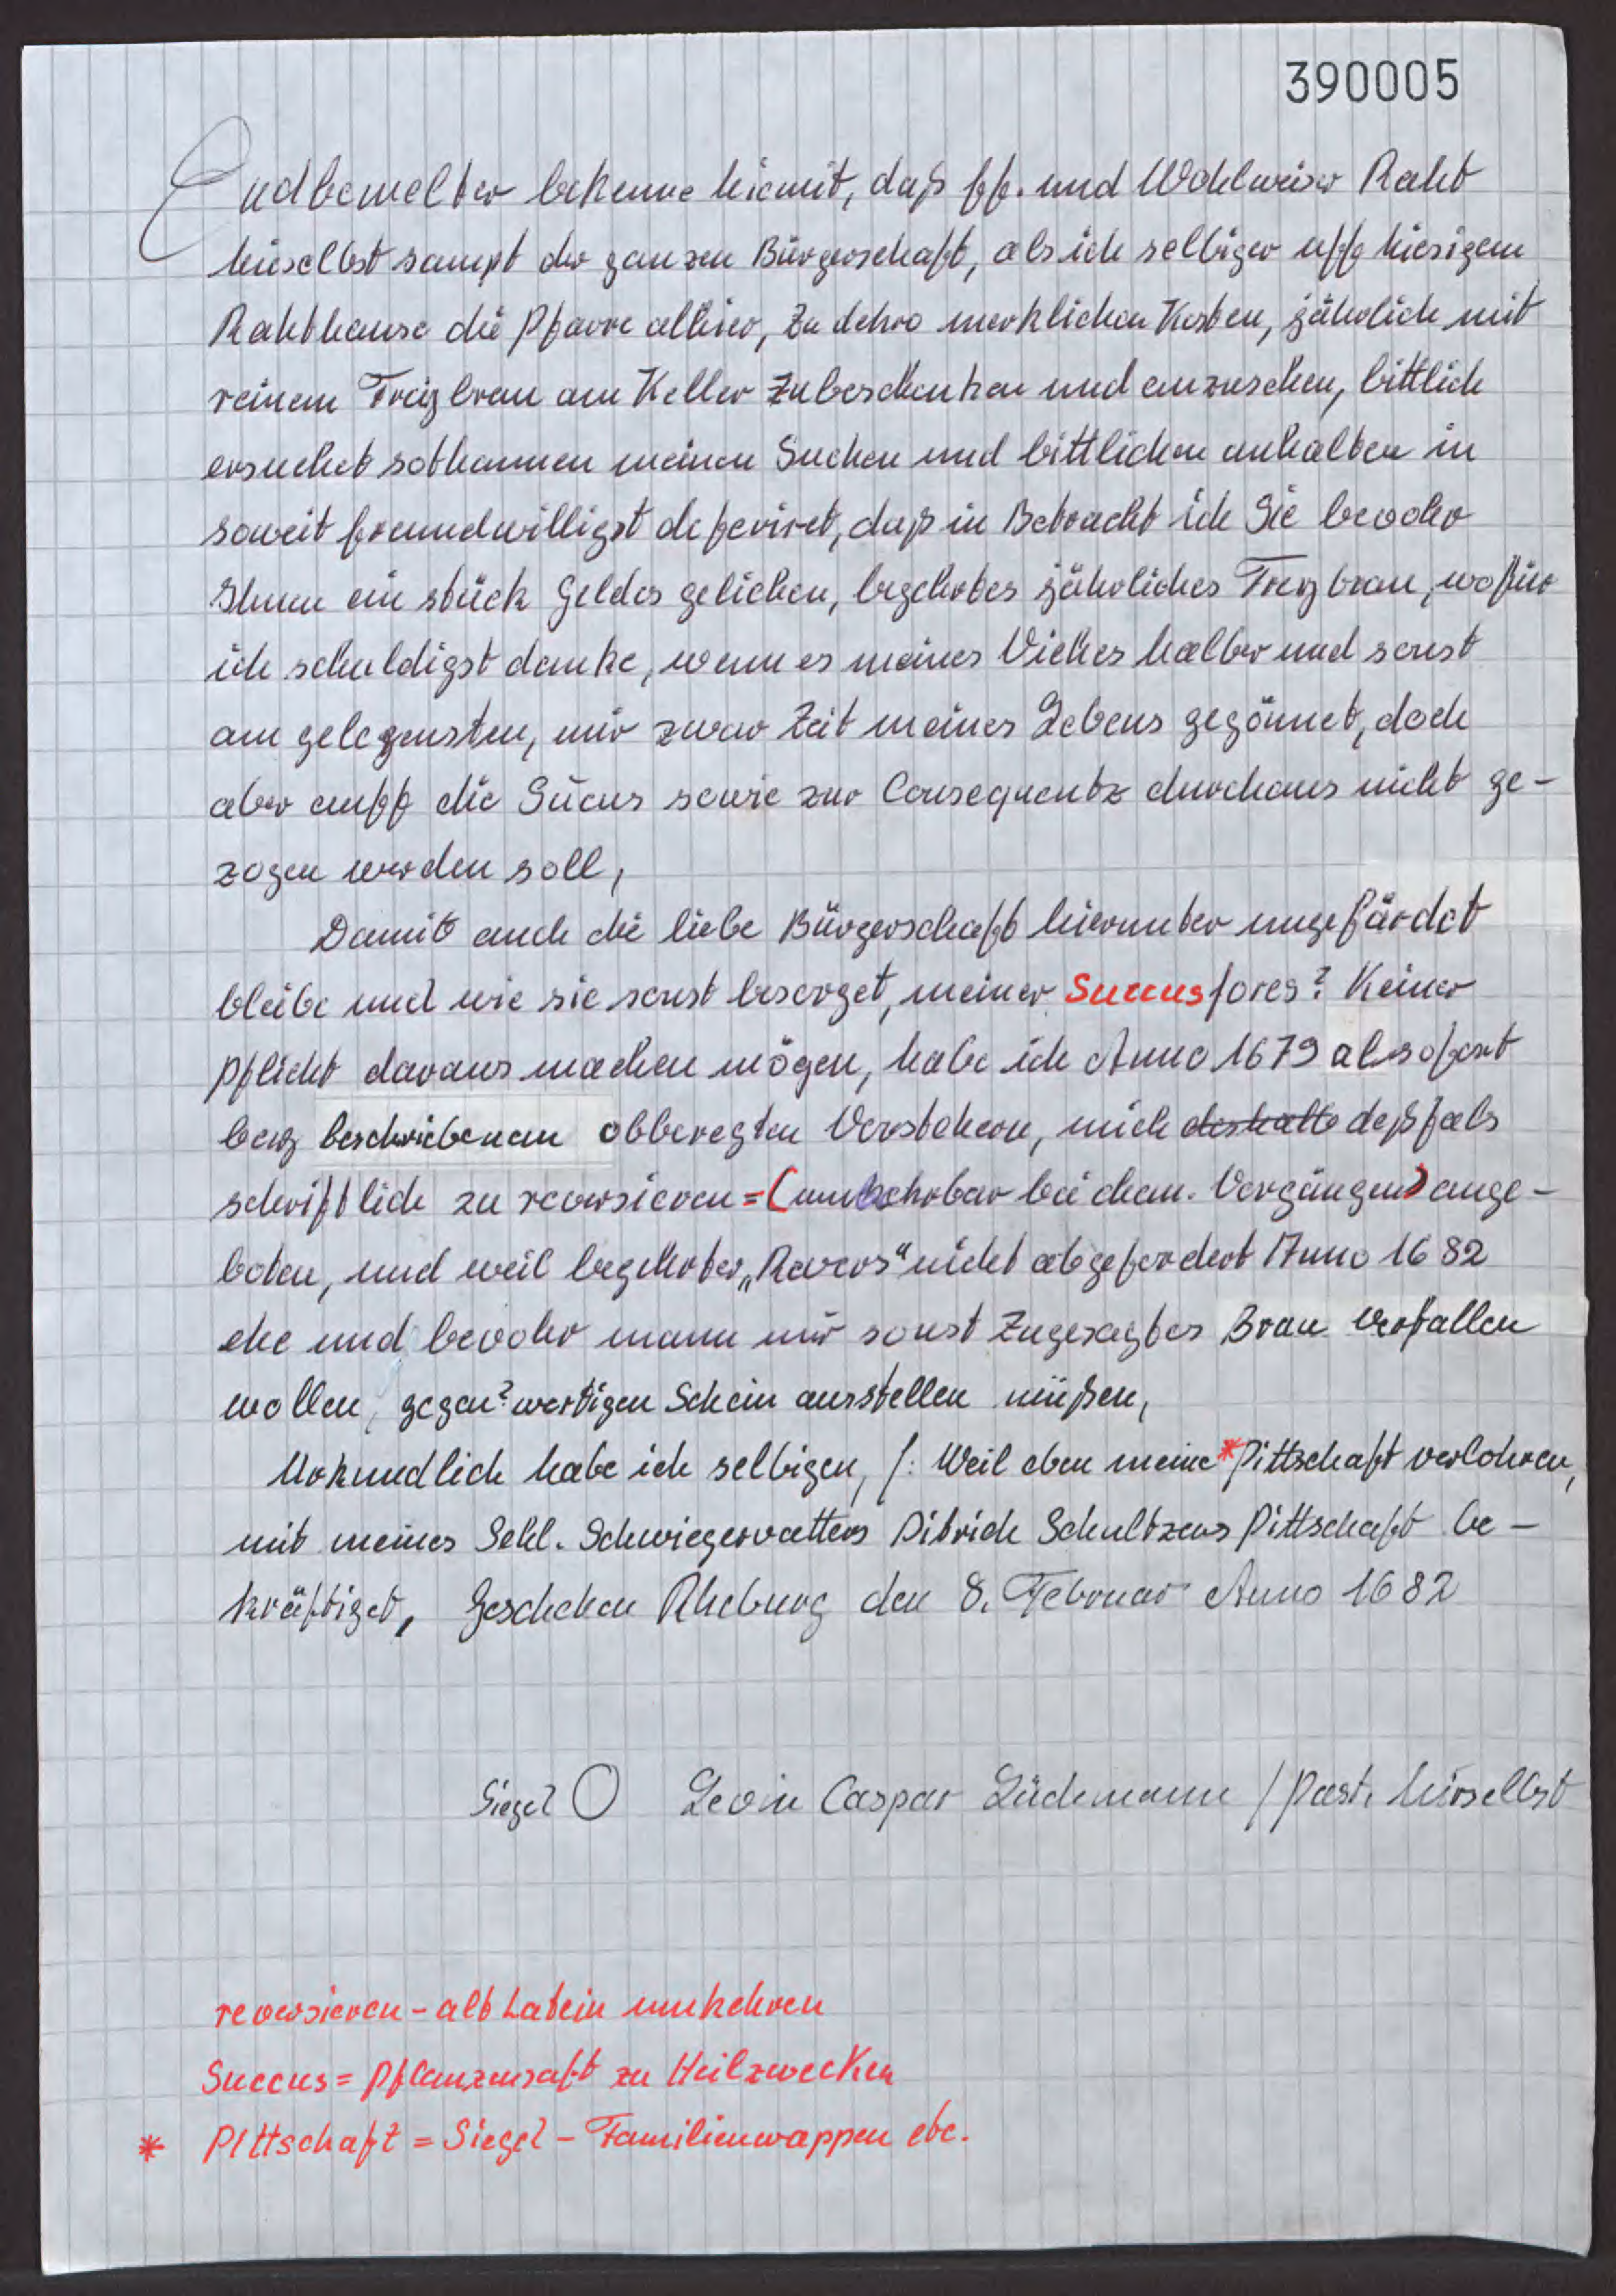 390005
Endbemelter bekenne hiemit, daß ff. und Wohlweiser Raht
hieselbst sampt der ganzen Bürgerschaft, als ich selbiger uff hiesigem
Rahthause die Pfarre allhier, Zu dehro merklichen Kosten, jährlich mit
reinem Freybrau am Keller Zubeschenken und anzusehen, bittlich
ersuchet sothannen meinen Suchen und bittlichen anhalten in
soweit freundwilligst deferiret, daß in Betracht ich Sie bevohr
Ihnen ein stück Geldes geliehen, begehrtes jährliches Freybrau, wofür
ich schuldigst danke, wenn es meines Viehes halber und sonst
am gelegensten, mir zwar Zeit meines Lebens gegönnet, doch
aber auff die Sucus sowie zur Consequentz durchaus nicht ge-
zogen werden soll,
Damit auch die liebe Bürgerschaft hierunter ungefärdet
bleibe und wie sie sonst besorget, meiner Succusfores? Keiner
Pflicht daraus machen mögen, habe ich Anno 1679 alsofort
bey beschriebenem obberegten Verstehern, mich deshalb deßfals
schrifftlich zu reversieren=(umkehrbar bei dem. Vorgängen) ange-
boten, und weil begehrter „Revers“ nicht abgefordert Anno 1682
ehe und bevohr mann mir sonst Zugesagtes Brau verfallen
wollen, gegen?wertigen Schein ausstellen müßen,
Urkundlich habe ich selbigen, /: Weil eben meine *Pittschaft verlohren,
mit meines Sehl. Schwiegervatters Ditrich Schultzens Pittschaft be-
kräftiget, Geschehen Rheburg den 8. Februar Anno 1682
Siegel Levin Caspar Lüdemann / Past. hierselbst
reversieren - alt Latein umkehren
Succus = Pflanzensaft zu Heilzwecken
* Pittschaft = Siegel - Familienwappen etc.